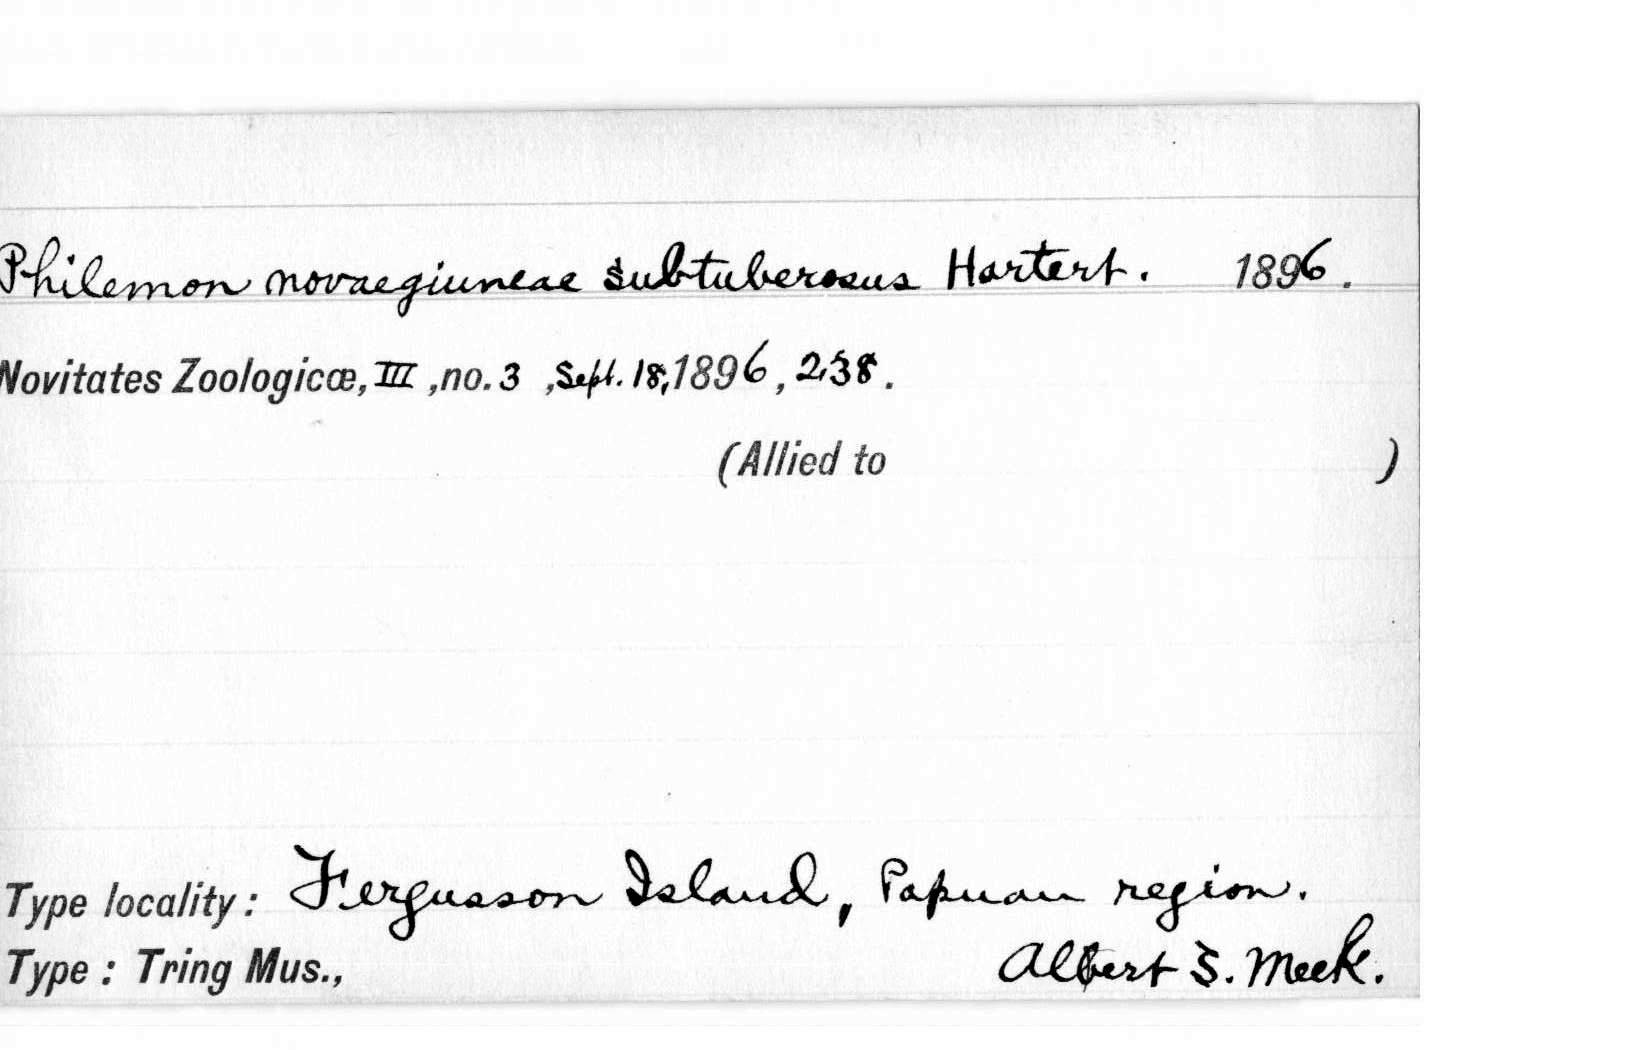 Philemon novaegiuneae subtuberosus Hartert. 1896.
Novitates Zoologicæ, III, no. 3, Sept. 18, 1896, 238.
(Allied to )
Type locality: Fergusson Island, Papuan region.
Type: Tring Mus., Albert S. Meek.